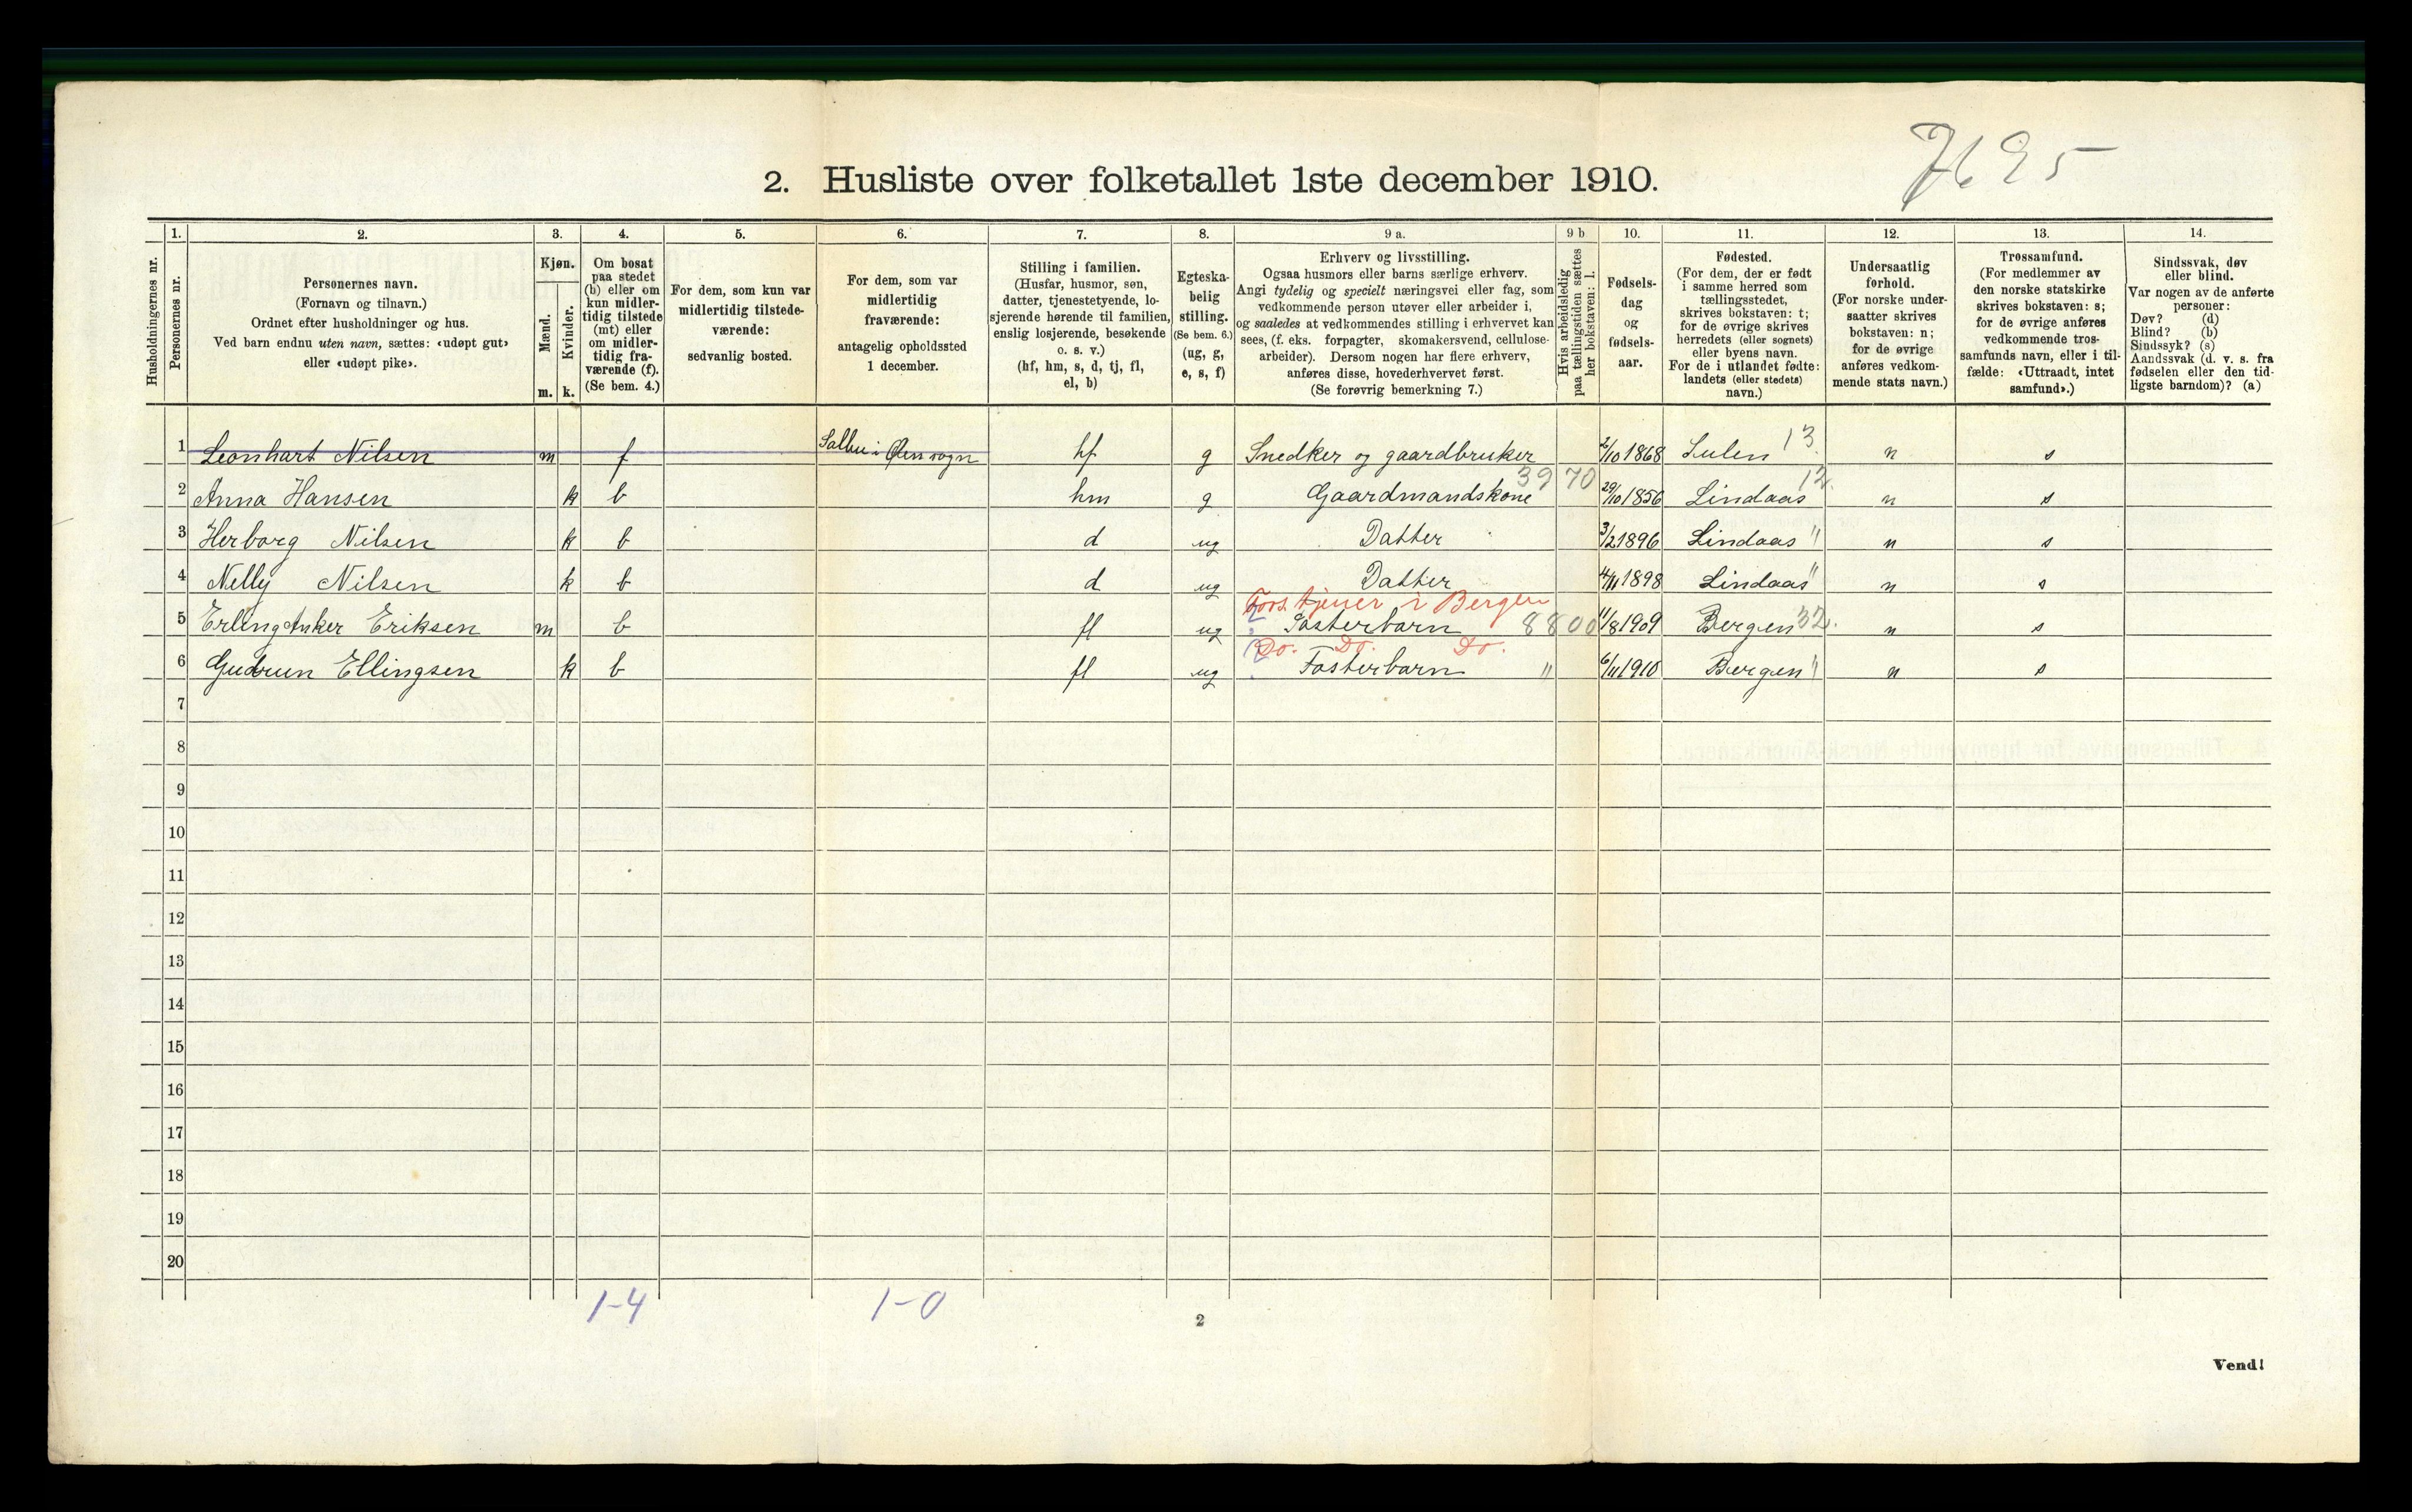 7625
2. Husliste over folketallet 1ste december 1910.
Husholdningernes nr.
1.
Personernes nr.
2.
Personernes navn.
(Fornavn og tilnavn.)
Ordnet efter husholdninger og hus.
Ved barn endnu uten navn, sættes: «udøpt gut»
eller «udøpt pike».
3.
Kjøn.
Mænd.
Kvinder.
m. k.
4.
Om bosat
paa stedet
(b) eller om
kun midler-
tidig tilstede
(mt) eller
om midler-
tidig fra-
værende (f).
(Se bem. 4.)
5.
For dem, som kun var
midlertidig tilstede-
værende:
sedvanlig bosted.
6.
For dem, som var
midlertidig
fraværende:
antagelig opholdssted
1 december.
7.
Stilling i familien.
(Husfar, husmor, søn,
datter, tjenestetyende, lo-
sjerende hørende til familien,
enslig losjerende, besøkende
o. s. v.)
(hf, hm, s, d, tj, fl,
el, b)
8.
Egteska-
belig
stilling.
(Se bem. 6.)
(ug, g,
e, s, f)
9 a.
Erhverv og livsstilling.
Ogsaa husmors eller barns særlige erhverv.
Angi tydelig og specielt næringsvei eller fag, som
vedkommende person utøver eller arbeider i,
og saaledes at vedkommendes stilling i erhvervet kan
sees, (f. eks. forpagter, skomakersvend, cellulose-
arbeider). Dersom nogen har flere erhverv,
anføres disse, hovederhvervet først.
(Se forøvrig bemerkning 7.)
9 b
Hvis arbeidsledig
paa tællingstiden sættes
her bokstaven: l.
10.
Fødsels-
dag
og
fødsels-
aar.
11.
Fødested.
(For dem, der er født
i samme herred som
tællingsstedet,
skrives bokstaven: t;
for de øvrige skrives
herredets (eller sognets)
eller byens navn.
For de i utlandet fødte:
landets (eller stedets)
navn.)
12.
Undersaatlig
forhold.
(For norske under-
saatter skrives
bokstaven: n;
for de øvrige
anføres vedkom-
mende stats navn.)
13.
Trossamfund.
(For medlemmer av
den norske statskirke
skrives bokstaven: s;
for de øvrige anføres
vedkommende tros-
samfunds navn, eller i til-
fælde: «Uttraadt, intet
samfund».)
14.
Sindssvak, døv
eller blind.
Var nogen av de anførte
personer:
Døv? (d)
Blind? (b)
Sindssyk? (s)
Aandssvak (d. v. s. fra
fødselen eller den tid-
ligste barndom)? (a)
1 Leonhart Nilsen m f i Ølen sogn hf g Snedker og gaardbruker 2/10 1868 Sulen 13 n s
2 Anna Hansen k b hm g Gaardmandskone 39 70 29/10 1856 Lindaas 12. n s
3 Herborg Nilsen k b d ug Datter 3/2 1896 Lindaas " n s
4 Nelly Nilsen k b d ug Datter 4/11 1898 Lindaas " n s
Fors. tjener i Bergen
5 Erling Anker Eriksen m b fl ug Fosterbarn 8800 11/8 1909 Bergen 32. n s
Do. Do. Do.
6 Gudrun Ellingsen k b fl ug Fosterbarn " 6/11 1910 Bergen " n s
7
8
9
10
11
12
13
14
15
16
17
18
19
20
1-4 1-0
2
Vend!